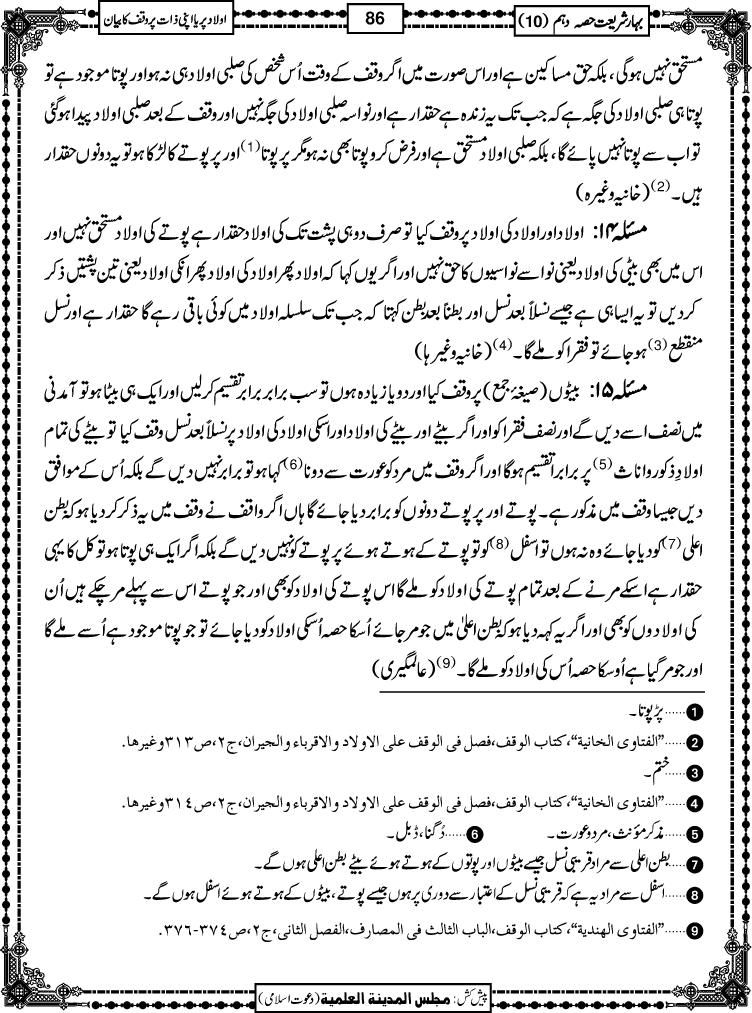 بہارِ شریعت حصہ دہم (10)
86
اولاد پر یا اپنی ذات پر وقف کا بیان
مستحق نہیں ہوگی، بلکہ حق مساکین ہے اور اس صورت میں اگر وقف کے وقت اُس شخص کی صلبی اولاد ہی نہ ہو اور پوتا موجود ہے تو
پوتا ہی صلبی اولاد کی جگہ ہے کہ جب تک یہ زندہ ہے حقدار ہے اور نواسہ صلبی اولاد کی جگہ نہیں اور وقف کے بعد صلبی اولاد پیدا ہوگئی
تو اب سے پوتا نہیں پائے گا، بلکہ صلبی اولاد مستحق ہے اور فرض کرو پوتا بھی نہ ہو مگر پرپوتا(1) اور پرپوتے کا لڑکا ہو تو یہ دونوں حقدار
ہیں۔(2) (خانیہ وغیرہ)
مسئلہ ۱۴: اولاد اور اولاد کی اولاد پر وقف کیا تو صرف دو ہی پشت تک کی اولاد حقدار ہے پوتے کی اولاد مستحق نہیں اور
اس میں بھی بیٹی کی اولاد یعنی نواسے نواسیوں کا حق نہیں اور اگر یوں کہا کہ اولاد پھر اولاد کی اولاد پھر انکی اولاد یعنی تین پشتیں ذکر
کردیں تو یہ ایسا ہی ہے جیسے نسلاً بعد نسل اور بطناً بعد بطن کہتا کہ جب تک سلسلہ اولاد میں کوئی باقی رہے گا حقدار ہے اور نسل
منقطع(3) ہو جائے تو فقرا کو ملے گا۔(4) (خانیہ وغیرہا)
مسئلہ ۱۵: بیٹوں (صیغۂ جمع) پر وقف کیا اور دو یا زیادہ ہوں تو سب برابر برابر تقسیم کرلیں اور ایک ہی بیٹا ہو تو آمدنی
میں نصف اسے دیں گے اور نصف فقرا کو اور اگر بیٹے اور بیٹے کی اولاد اور اسکی اولاد کی اولاد پر نسلاً بعد نسل وقف کیا تو بیٹے کی تمام
اولادِ ذکور و اناث(5) پر برابر تقسیم ہوگا اور اگر وقف میں مرد کو عورت سے دونا(6) کہا ہو تو برابر نہیں دیں گے بلکہ اُس کے موافق
دیں جیسا وقف میں مذکور ہے۔ پوتے اور پرپوتے دونوں کو برابر دیا جائے گا ہاں اگر واقف نے وقف میں یہ ذکر کر دیا ہو کہ بطن
اعلی(7) کو دیا جائے وہ نہ ہوں تو اسفل(8) کو تو پوتے کے ہوتے ہوئے پرپوتے کو نہیں دیں گے بلکہ اگر ایک ہی پوتا ہو تو کل کا یہی
حقدار ہے اسکے مرنے کے بعد تمام پوتے کی اولاد کو ملے گا اس پوتے کی اولاد کو بھی اور جو پوتے اس سے پہلے مرچکے ہیں اُن
کی اولادوں کو بھی اور اگر یہ کہہ دیا ہو کہ بطن اعلیٰ میں جو مر جائے اُسکا حصہ اُسکی اولاد کو دیا جائے تو جو پوتا موجود ہے اُسے ملے گا
اور جو مر گیا ہے اُوسکا حصہ اُس کی اولاد کو ملے گا۔(9) (عالمگیری)
1......پڑپوتا۔
2......”الفتاوی الخانیة“،کتاب الوقف،فصل فی الوقف علی الاولاد والاقرباء والجیران،ج۲،ص۳۱۳وغیرہا.
3......ختم۔
4......”الفتاوی الخانیة“،کتاب الوقف،فصل فی الوقف علی الاولاد والاقرباء والجیران،ج۲،ص۳۱٤وغیرہا.
5......مذکر مؤنث، مرد و عورت۔ 6......دُگنا، ڈبل۔
7......بطن اعلی سے مراد قریبی نسل جیسے بیٹوں اور پوتوں کے ہوتے ہوئے بیٹے بطن اعلی ہوں گے۔
8......اسفل سے مراد یہ ہے کہ قریبی نسل کے اعتبار سے دوری پر ہوں جیسے پوتے، بیٹوں کے ہوتے ہوئے اسفل ہوں گے۔
9......”الفتاوی الھندیة“،کتاب الوقف،الباب الثالث فی المصارف،الفصل الثانی،ج۲،ص۳۷٤-۳۷٦.
پیش کش: مجلس المدینة العلمیة (دعوت اسلامی)